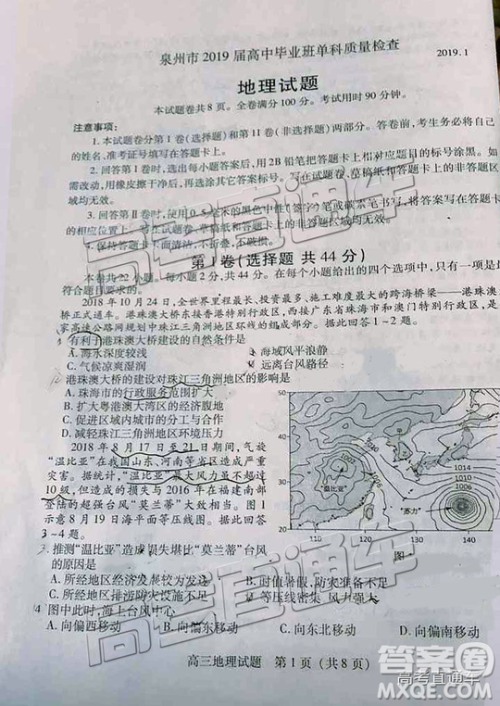 泉州市2019届高中毕业班单科质量检查
2019.1
地理试题
本试题卷共8页。全卷满分100分。考试用时90分钟。
注意事项:
1.本试题卷分第Ⅰ卷(选择题)和第11卷(非选择题)两部分。答卷前,考生务必将自己
的姓名、准考证号填写在答题卡上。
2.回答第Ⅰ卷时,选出每小题答案后,用2B铅笔把答题卡上对应题目的标号涂黑。如
需改动,用橡皮擦干净后,再选涂其它答案标号。答题卡、草稿纸和答题卡上的非答题区
域均无效。
3.回答第Ⅱ卷时,使用0.5毫米的黑色中性(签字)笔或碳素笔书写,将答案写在答题
卡的相应位置上。写在试题卷、草稿纸和答题卡上的非答题区域均无效。
4.保持答题卡卡面清洁,不折叠、不破损。
第Ⅰ卷(选择题 共44分)
本卷共22小题,每小题2分,共44分。在每个小题给出的四个选项中,只有一项是
符合题目要求的。
2018年10月24日,全世界里程最长、投资最多、施工难度最大的跨海桥梁——港珠澳大
桥正式通车。港珠澳大桥东接香港特别行政区,西接广东省珠海市和澳门特别行政区,是
家高速公路网规划中珠江三角洲地区环线的组成部分。据此回答1~2题。
1.有利于港珠澳大桥建设的自然条件是
A.海水深度较浅
B.海域风平浪静
C.气候凉爽湿润
D.远离台风路径
2.港珠澳大桥的建设对珠江三角洲地区的影响是
A.珠海市的行政服务范围扩大
B.扩大粤港澳大湾区的经济腹地
C.促进区域内城市的分工与合作
D.减轻珠江三角洲地区环境压力
2018年8月17日至21日期间,气旋
“温比亚”在我国山东、河南等省区造成严重
灾害。据统计,“温比亚”最大风力虽不超过
10级,但造成的损失与2016年在福建南部
登陆的超强台风“莫兰蒂”台风相当。图1
示意8月19日海平面等压线图。据此回答
3~4题。
1014
1016
1010
1006
“温比亚”
“苏力”
图一
3.推测“温比亚”造成损失堪比“莫兰蒂”台风
的原因是
A.所经地区经济发展较为发达
B.时值暑假,防灾准备不足
C.所经地区地形平坦开阔
D.等压线密集 风力强大
4.图中此时,海上台风中心
A.向偏西移动
B.向偏东移动
C.向东北移动
D.向偏南移动
高三地理试题 第1页(共8页)
高考直通车
答案圈
高考直通车
MXQE.COM